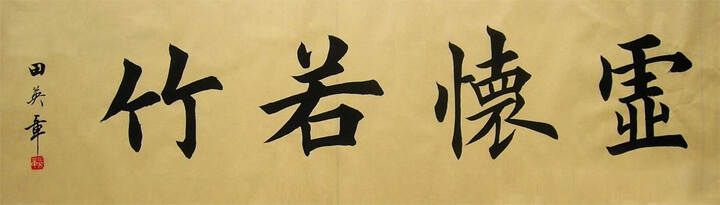 虛懷若竹
田英章